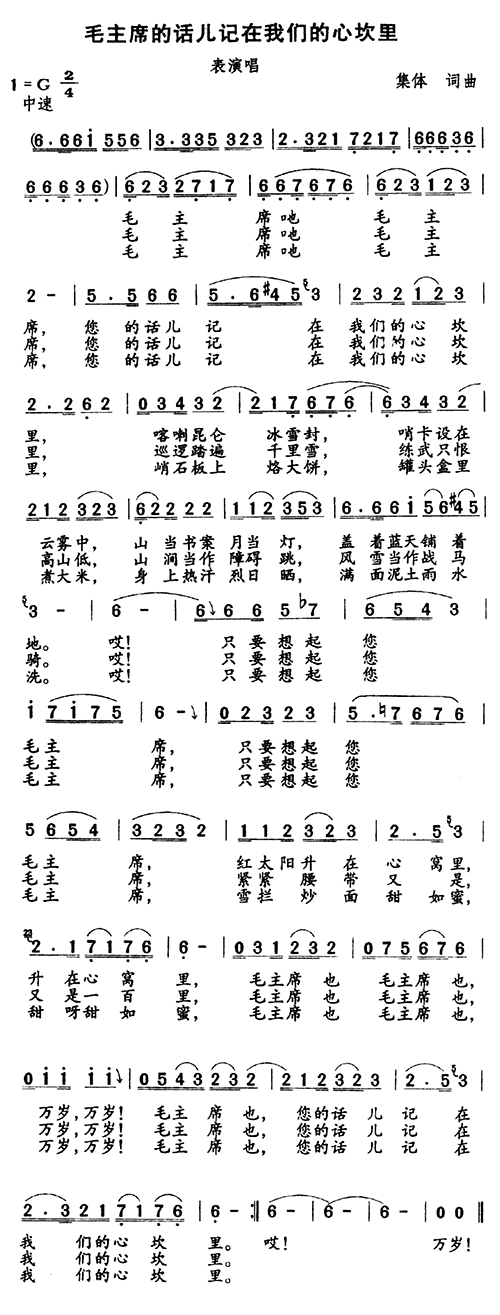 毛主席的话儿记在我们的心坎里
表演唱
1=G 2/4
集体 词曲
中速
(6.66i 556 | 3.335 323 | 2.321 7217 | 66636 |
66636) | 6232717 | 667676 | 623123 |
毛 主 席吔 毛 主
毛 主 席吔 毛 主
毛 主 席吔 毛 主
2 - | 5.566 | 5.6#45 3 | 232123 |
席, 您 的话儿 记 在 我们的心 坎
席, 您 的话儿 记 在 我们的心 坎
席, 您 的话儿 记 在 我们的心 坎
2.262 | 03432 | 217676 | 63432 |
里, 喀喇昆仑 冰雪封, 哨卡设在
里, 巡逻踏遍 千里雪, 练武只恨
里, 峭石板上 烙大饼, 罐头盒里
212323 | 62222 | 112353 | 6.66i56#45 |
云雾中, 山 当书案 月当 灯, 盖 着蓝天铺 着
高山低, 山 涧当作 障碍 跳, 风 雪当作战 马
煮大米, 身 上热汗 烈日 晒, 满 面泥土雨 水
3 - | 6 - | 6 6 6 5 b7 | 6543 |
地。 哎! 只要想起 您
骑。 哎! 只要想起 您
洗。 哎! 只要想起 您
i7i75 | 6 - | 02323 | 5.7676 |
毛主 席, 只要想起 您
毛主 席, 只要想起 您
毛主 席, 只要想起 您
5654 | 3232 | 112323 | 2.5 3 |
毛主 席, 红太阳升 在 心 窝里,
毛主 席, 紧紧 腰 带 又 是,
毛主 席, 雪拦 炒 面 甜 如蜜,
2.17176 | 6 - | 031232 | 075676 |
升 在心 窝 里, 毛主席 也 毛主席 也,
又 是一 百 里, 毛主席 也 毛主席 也,
甜 呀甜 如 蜜, 毛主席 也 毛主席 也,
0ii ii | 0543232 | 212323 | 2.5 3 |
万岁,万岁! 毛主 席 也, 您的话 儿 记 在
万岁,万岁! 毛主 席 也, 您的话 儿 记 在
万岁,万岁! 毛主 席 也, 您的话 儿 记 在
2.3217176 | 6 - :‖ 6 - | 6 - | 6 - | 00 ‖
我 们的心 坎 里。 哎! 万岁!
我 们的心 坎 里。
我 们的心 坎 里。